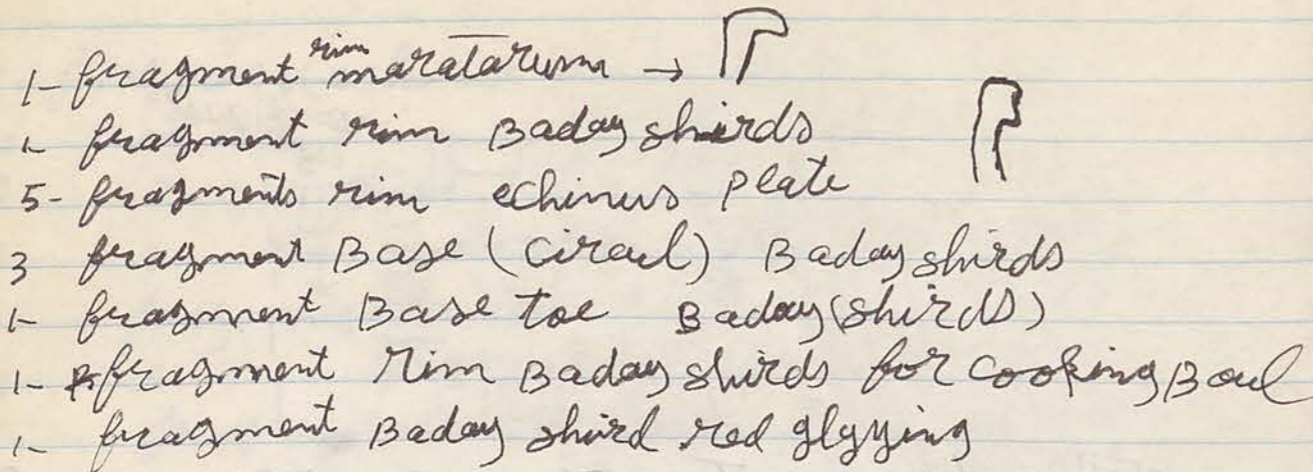 1- fragment rim maratarum →
1- fragment rim Baday shirds
5- fragments rim echinus plate
3 fragment Base (Ciraul) Baday shirds
1- fragment Base toe Baday (shirds)
1- fragment rim Baday shirds for cooking Boul
1- fragment Baday shird red glyying